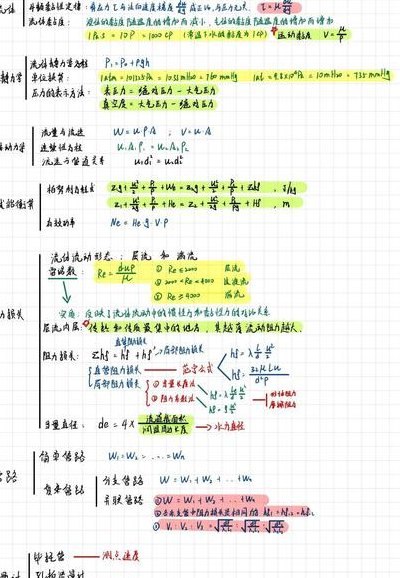 牛顿黏性定律：剪应力τ与法向速度梯度 du/dy 成正比，与压力无关。 τ = μ du/dy
流体黏度：液体的黏度随温度的增加而减小，气体的黏度随温度的增加而增加
1Pa·s = 10P = 1000cP（常温下水的黏度为1cP） 运动黏度 ν = μ/ρ
流体静力学方程 P₂ = P₀ + ρgh
单位换算： 1atm = 101325Pa = 10.33mH₂O = 760mmHg 1at = 9.81×10⁴Pa = 10mH₂O = 735mmHg
压力的表示方法： 表压力 = 绝对压力 - 大气压力
真空度 = 大气压力 - 绝对压力
流量与流速 W = u·ρ·A ; V = u·A
连续性方程 u₁A₁ρ₁ = u₂A₂ρ₂
流速与管道关系 u₁d₁² = u₂d₂²
能量衡算
伯努利方程式 z₁g + u₁²/2 + P₁/ρ + We = z₂g + u₂²/2 + P₂/ρ + Σhf , J/kg
z₁ + u₁²/2g + P₁/ρg + He = z₂ + u₂²/2g + P₂/ρg + Hf , m
有效功率 Ne = He·g·V·ρ
流体流动形态：层流 和 湍流
雷诺数： Re = duρ/μ ① Re≤2000 层流
② 2000<Re<4000 过渡流
③ Re≥4000 湍流
实质：反映了流体流动中的惯性力和黏性力的对比关系
层流内层：传热和传质最集中的地方，其越厚流动阻力越大。
直管阻力损失
阻力损失： Σhf = hf + hf' → 局部阻力损失
直管阻力损失 → 范宁公式 hf = λ l/d u²/2
hf = 32μLu/d²ρ
局部阻力损失 ① 当量长度法 → hf' = λ le/d u²/2
② 阻力系数法 → hf' = ξ u²/2
当量直径： de = 4× 流通截面积/润湿周边长度 → 水力直径
简单管路 W₁ = W₂ = ..... = Wn
复杂管路 分支管路 W = W₁ + W₂ + .. + Wn
并联管路 ① W = W₁ + W₂ + ... + Wn
毕托管 —— 测点速度